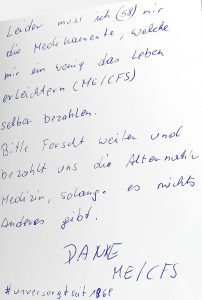 Leider muss ich (58) mir
die Medikamente, welche
mir ein wenig das Leben
erleichtern (ME/CFS)
selber bezahlen.
Bitte Forscht weiter und
bezahlt uns die Alternativ
Medizin, solange es nichts
Anderes gibt.
DANKE
ME/CFS
#unversorgtseit1969